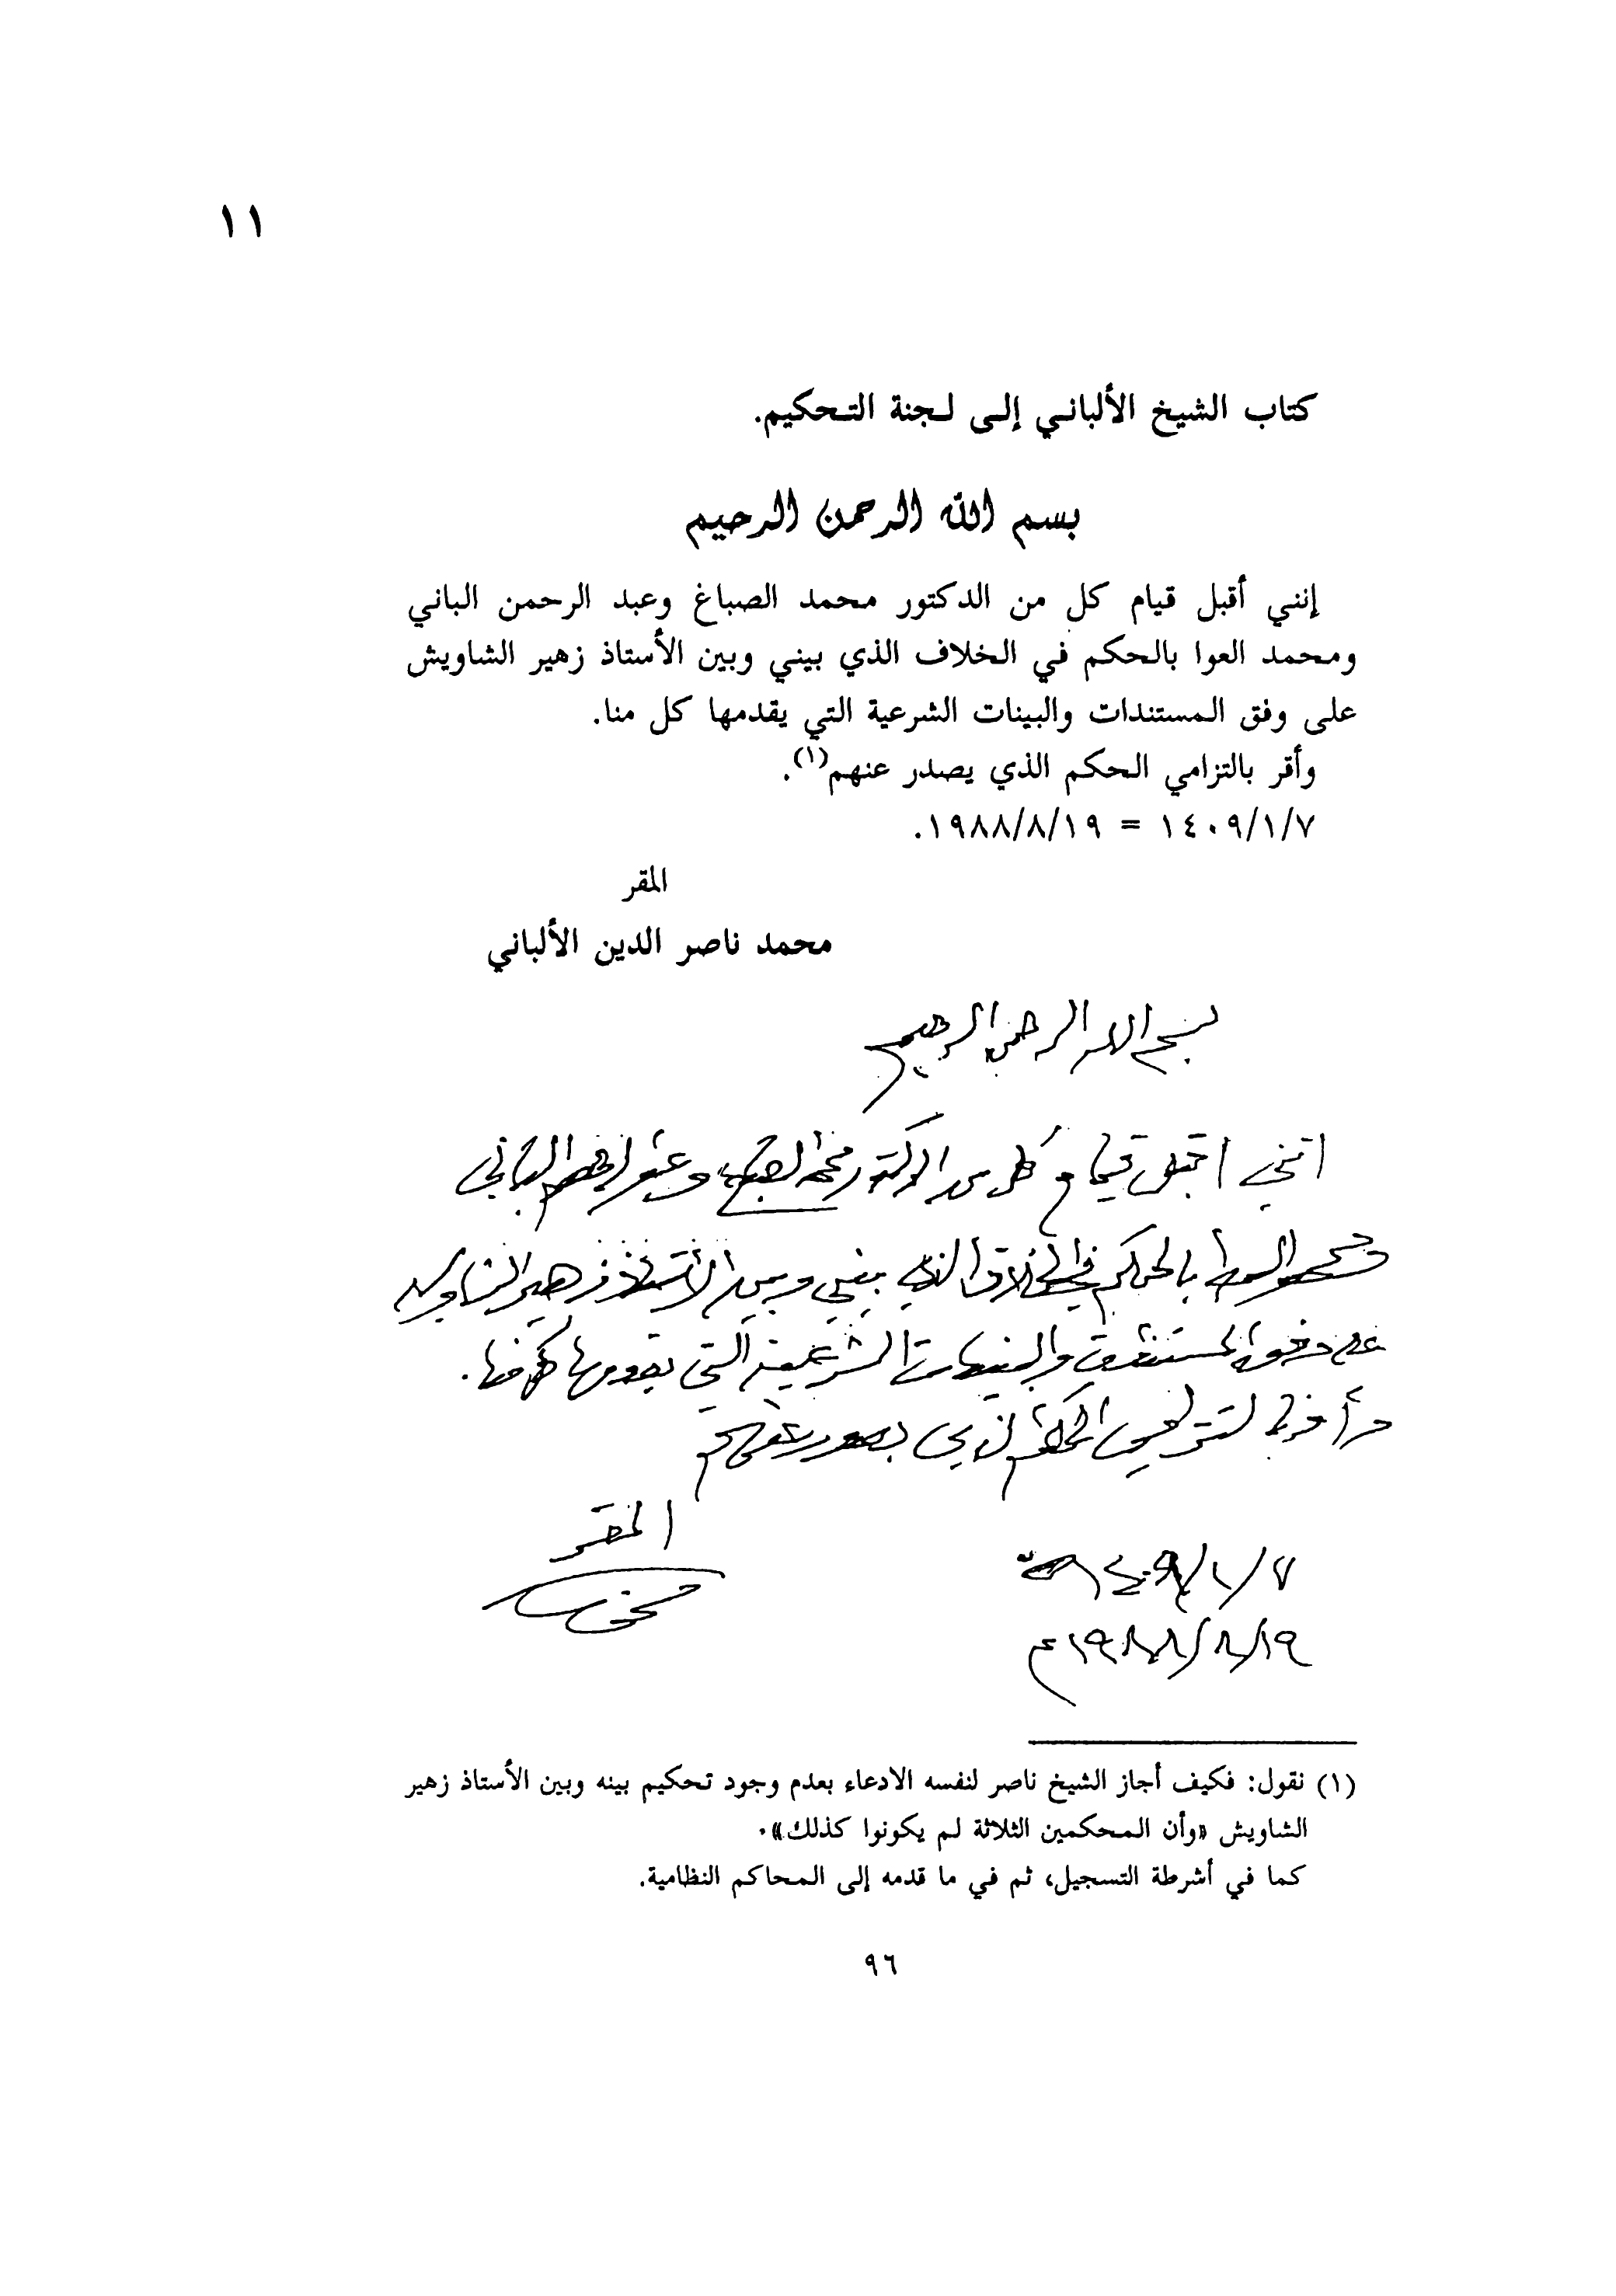 ١١
كتاب الشيخ الألباني إلى لجنة التحكيم.
بسم الله الرحمن الرحيم
إنني أقبل قيام كل من الدكتور محمد الصباغ وعبد الرحمن الباني
ومحمد العوا بالحكم في الخلاف الذي بيني وبين الأستاذ زهير الشاويش
على وفق المستندات والبينات الشرعية التي يقدمها كل منا.
وأقر بالتزامي الحكم الذي يصدر عنهم(١).
١٤٠٩/١/٧ = ١٩٨٨/٨/١٩.
المقر
محمد ناصر الدين الألباني
بسم الله الرحمن الرحيم
انني اقبل قيام كل من الدكتور محمد الصباغ وعبد الرحمن الباني
ومحمد العوا بالحكم في الخلاف الذي بيني وبين الأستاذ زهير الشاويش
على وفق المستندات والبينات الشرعية التي يقدمها كل منا.
وأقر بالتزامي الحكم الذي يصدر عنهم
المقر
١٤٠٩/١/٧هـ
١٩٨٨/٨/١٩م
(١) نقول: فكيف أجاز الشيخ ناصر لنفسه الادعاء بعدم وجود تحكيم بينه وبين الأستاذ زهير
الشاويش «وأن المحكمين الثلاثة لم يكونوا كذلك».
كما في أشرطة التسجيل، ثم في ما قدمه إلى المحاكم النظامية.
٩٦